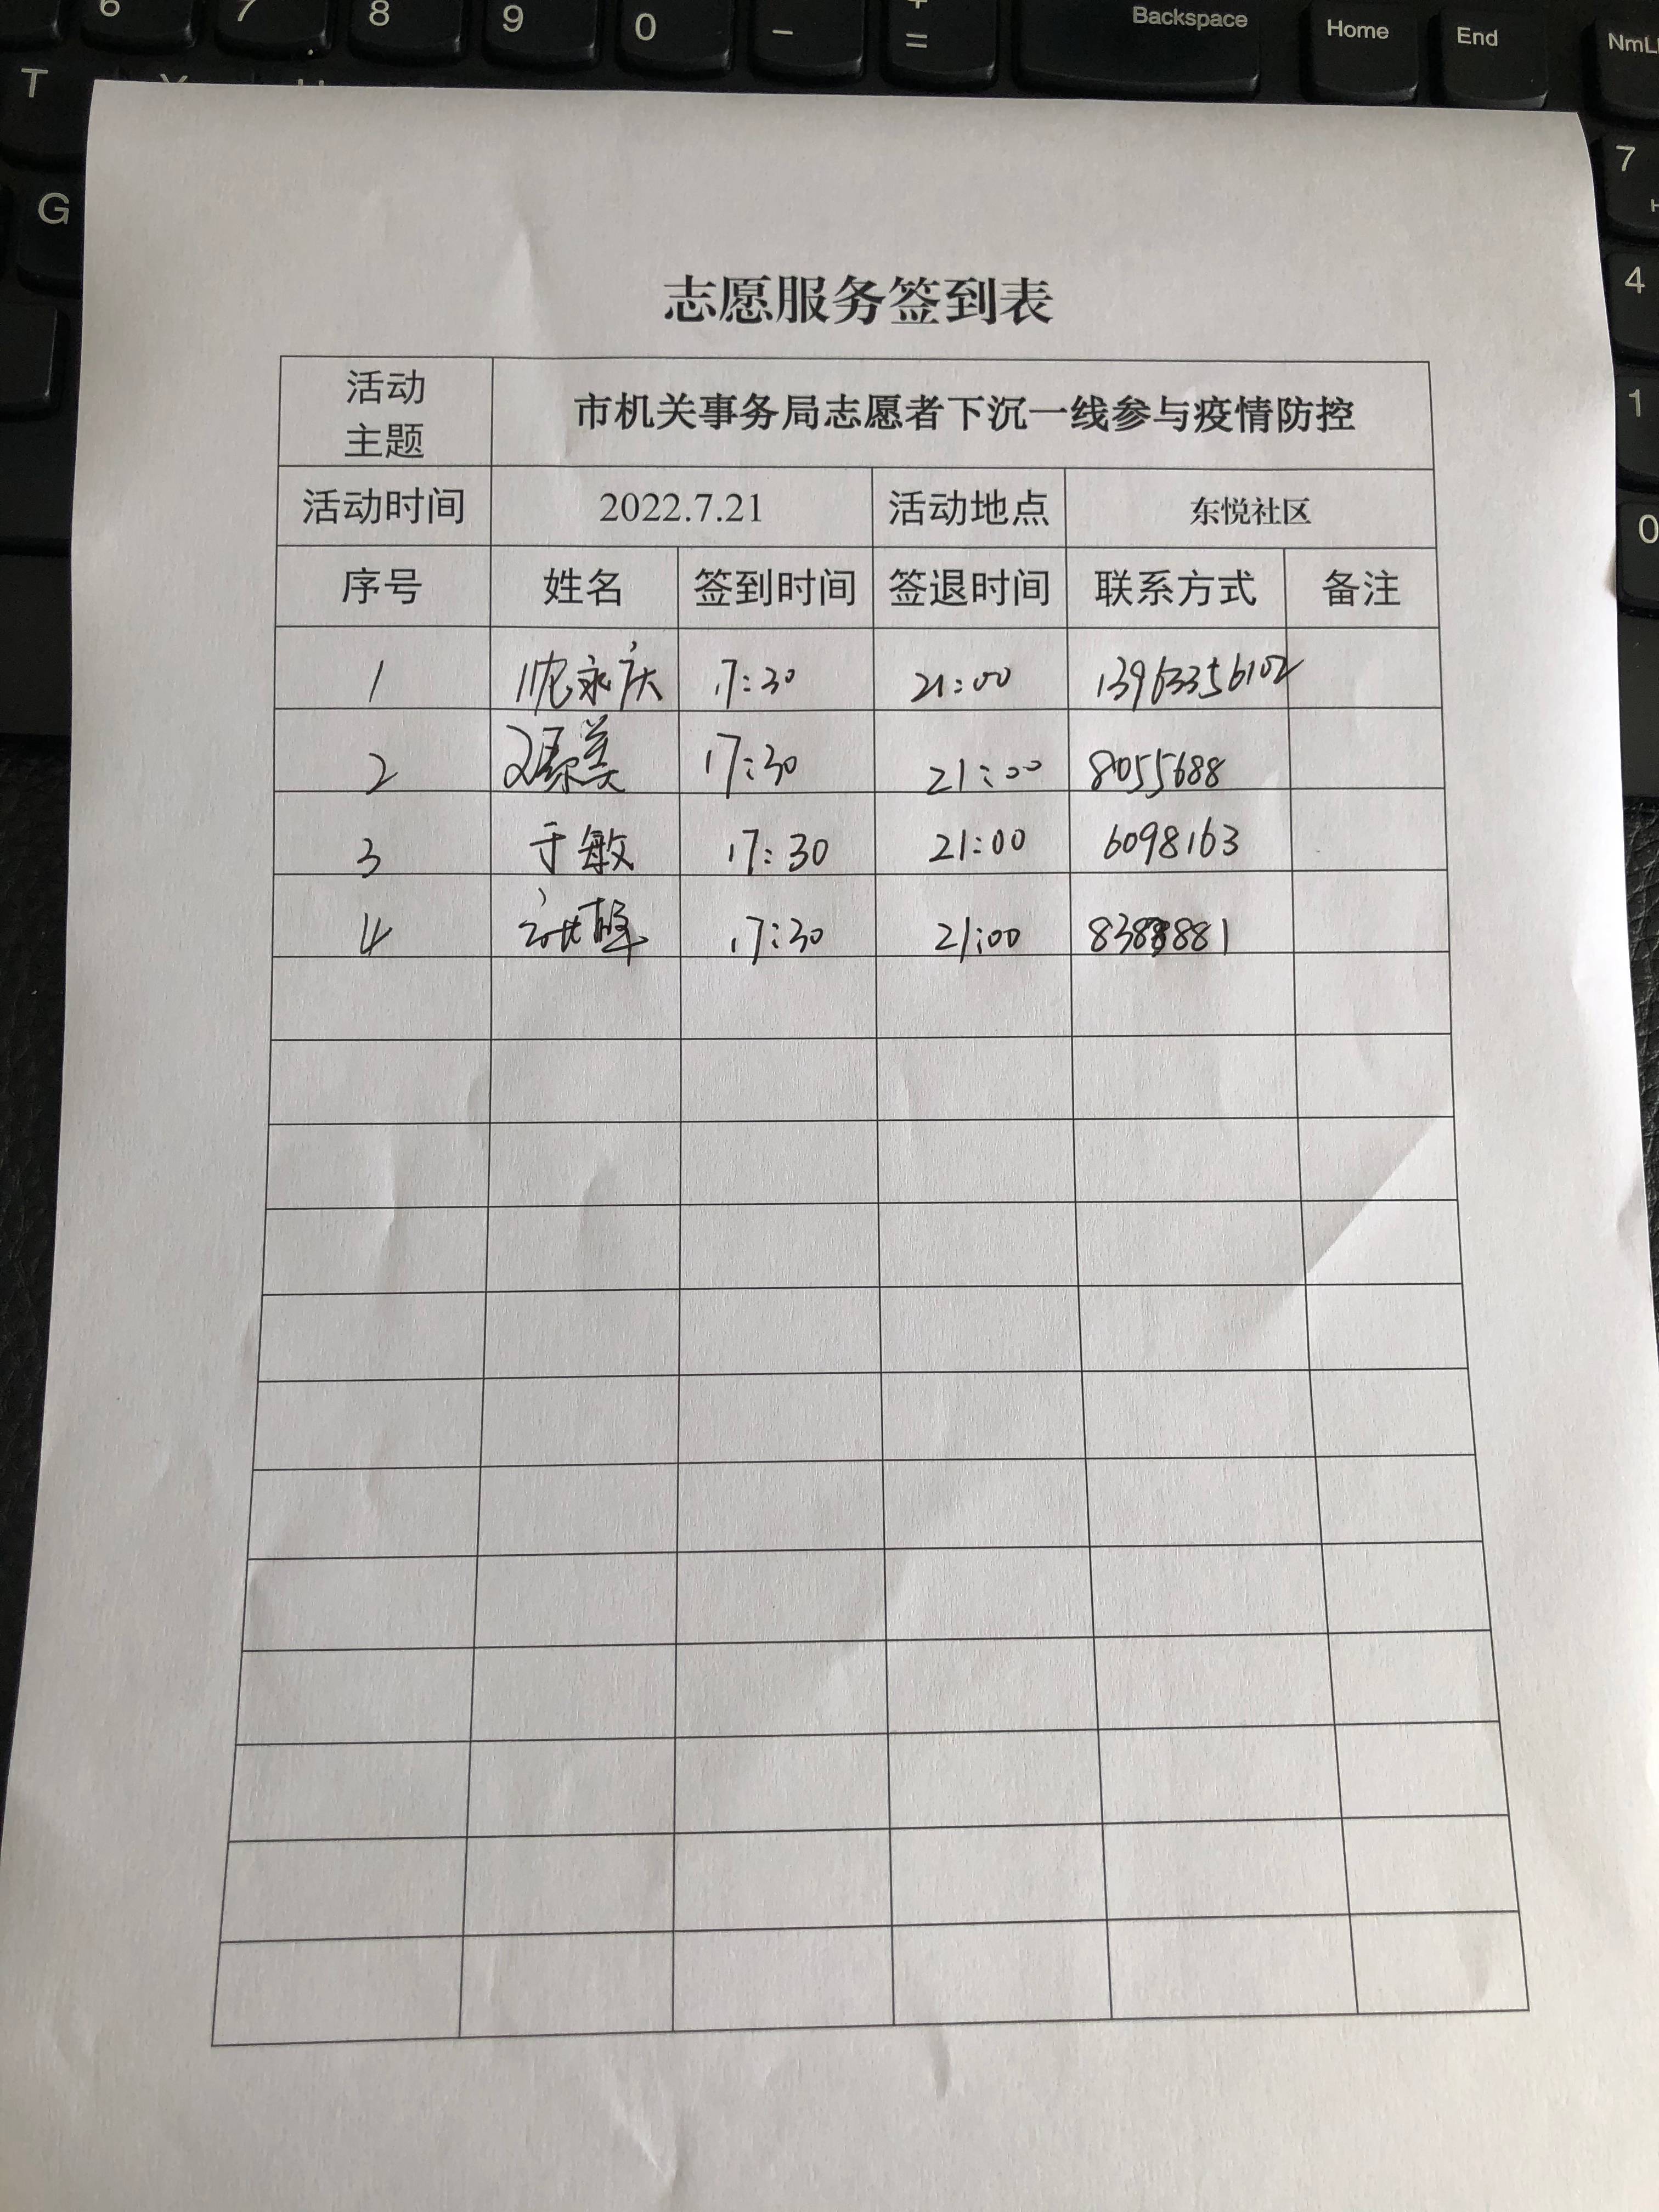 6 7 8 9 0 - + = Backspace Home End NmL
T Y U
G
7
4
1
0
志愿服务签到表
活动主题 市机关事务局志愿者下沉一线参与疫情防控
活动时间 2022.7.21 活动地点 东悦社区
序号 姓名 签到时间 签退时间 联系方式 备注
1 永庆 17:30 21:00 13963356102
2 17:30 21:00 8055688
3 于敏 17:30 21:00 6098163
4 17:30 21:00